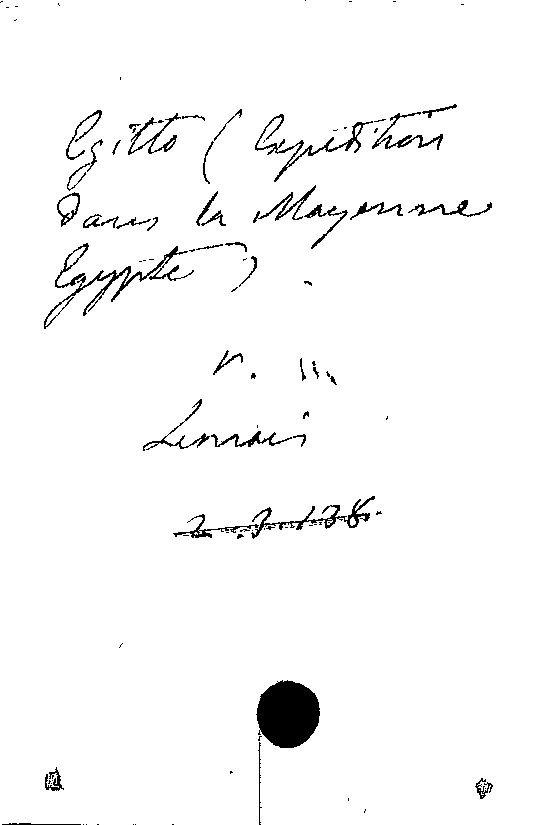 Egitto (Expédition
dans la Moyenne
Egypte) .
v. 
Lenrais
2. 3. 138.